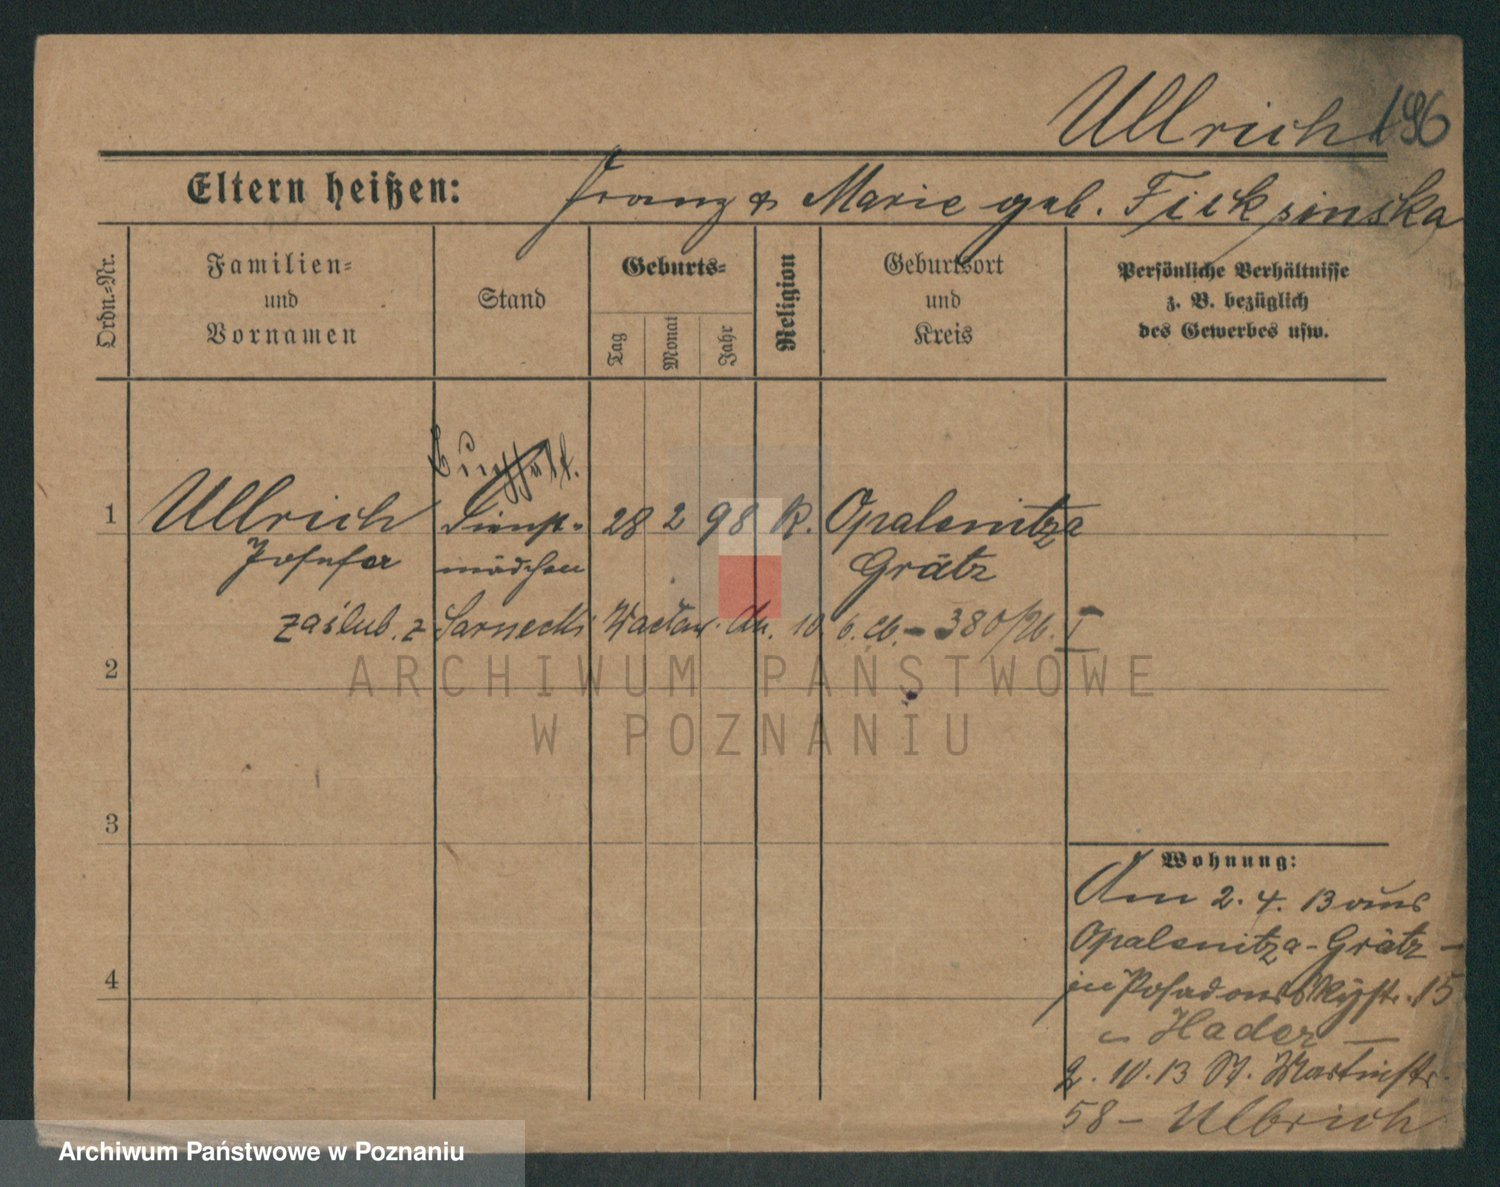 Ullrich 196
Eltern heißen: Franz & Marie geb.
Ordn.-Nr.
Familien-
und
Vornamen
Stand
Geburts-
Tag
Monat
Jahr
Religion
Geburtsort
und
Kreis
Persönliche Verhältnisse
z. B. bezüglich
des Gewerbes usw.
Buchhält.
1 Ullrich Dienst- 28 2 98 K. Opalenitza
Josefa mädchen Grätz
zaślub. z Sarnecki Wacław. dn. 10. 6. 26. - 380/26. I
2
3
4
Wohnung:
Am 2. 4. 13 aus
Opalenitza-Grätz -
in Posadowskystr. 15
Hader -
2. 10. 13 St. Martinstr.
58 - Ulbrich
ARCHIWUM PAŃSTWOWE
W POZNANIU
Archiwum Państwowe w Poznaniu